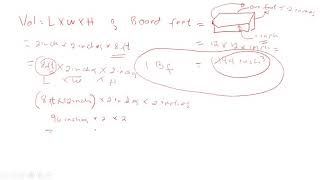 Vol = L X W X H ; Board foot =
one foot x 12 inches
1 inch
= 2 inch x 2 inches x 8 ft
= 12 x 12 x 1 inch
= 8 ft x 2 inches x 2 inches
L W H
1 Bf = 144 inch³
(8 ft x 12 inch) x 2 inches x 2 inches
96 inches x 2 x 2
=